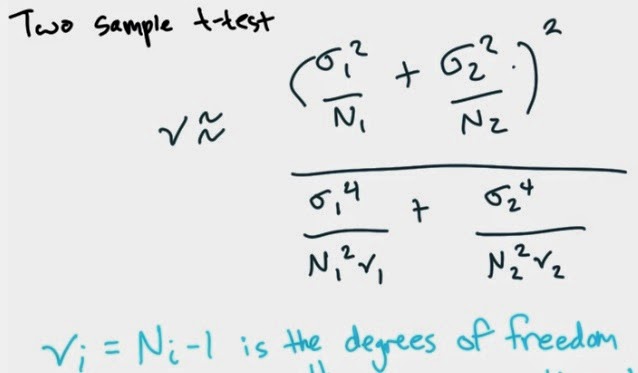 Two sample t-test
ν ≈ (σ₁²/N₁ + σ₂²/N₂)² / (σ₁⁴/N₁²ν₁ + σ₂⁴/N₂²ν₂)
νᵢ = Nᵢ-1 is the degrees of freedom